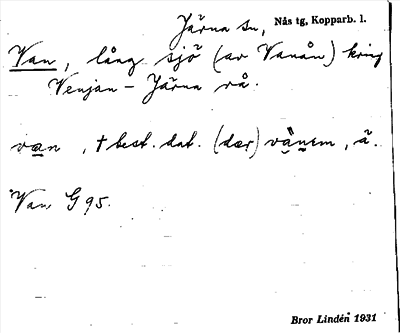 Järna sn, Nås tg, Kopparb. l.
Van, lång sjö (av Vanån) kring
Venjan - Järna rå.
van, † best. dat. (dær) vànem, ä.
Van G 95.
Bror Lindén 1931